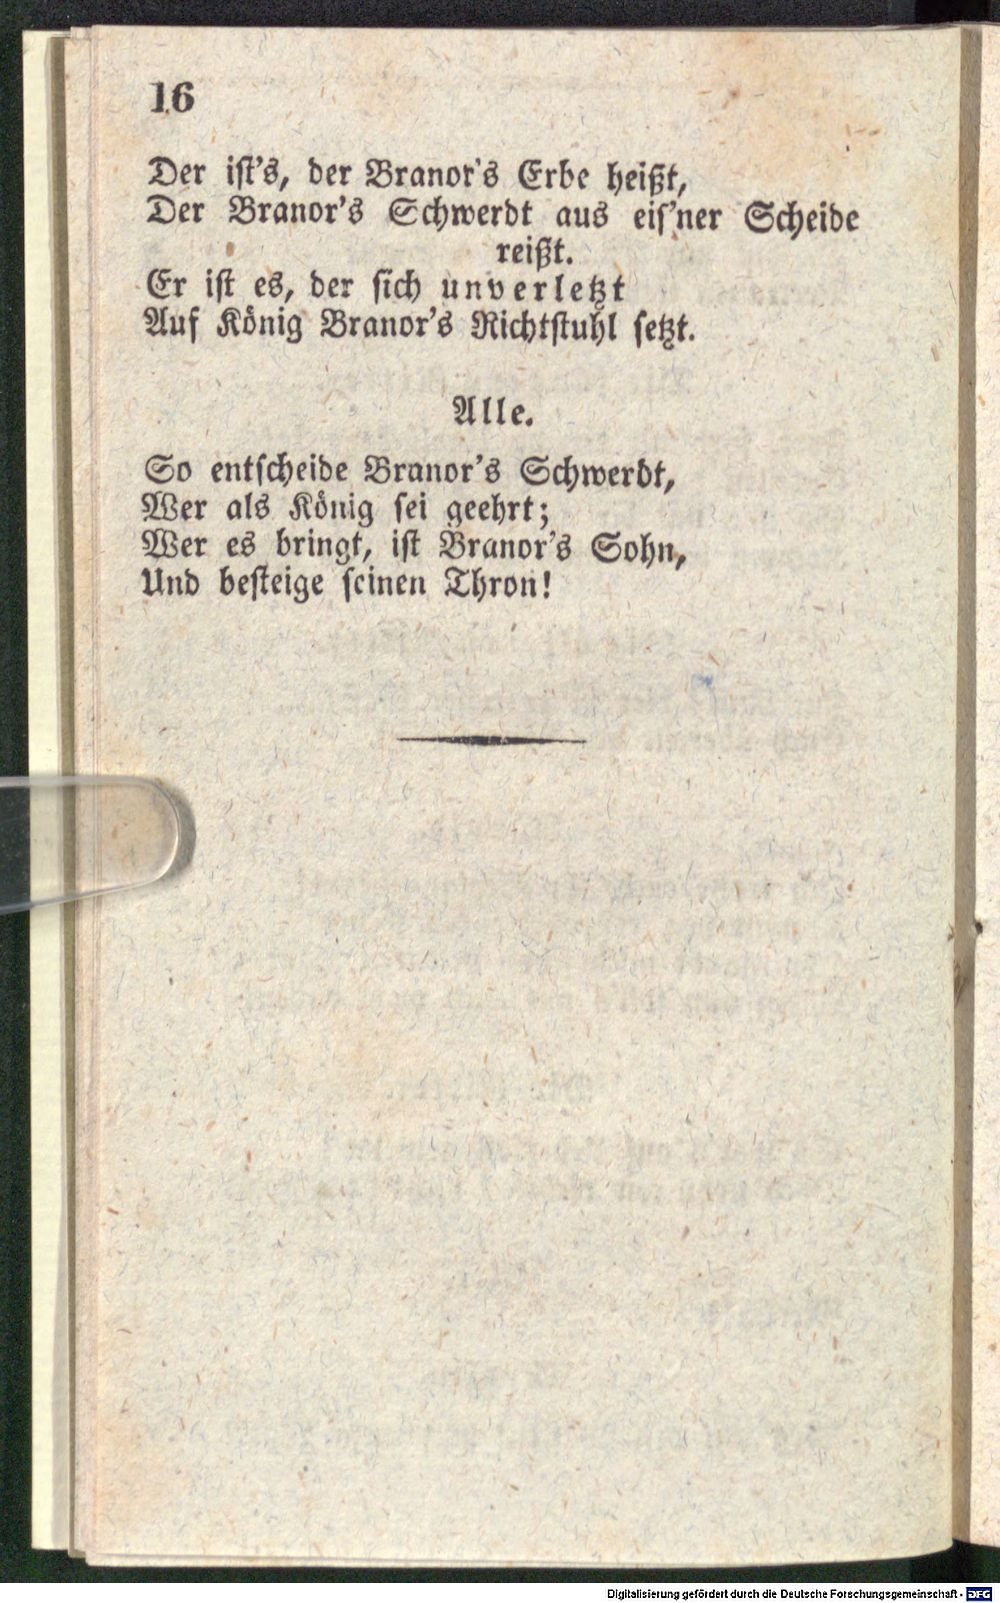 16
Der ist's, der Branor's Erbe heißt,
Der Branor's Schwerdt aus eis'ner Scheide
reißt.
Er ist es, der sich unverletzt
Auf König Branor's Richtstuhl setzt.
Alle.
So entscheide Branor's Schwerdt,
Wer als König sei geehrt;
Wer es bringt, ist Branor's Sohn,
Und besteige seinen Thron!
Digitalisierung gefördert durch die Deutsche Forschungsgemeinschaft - DFG